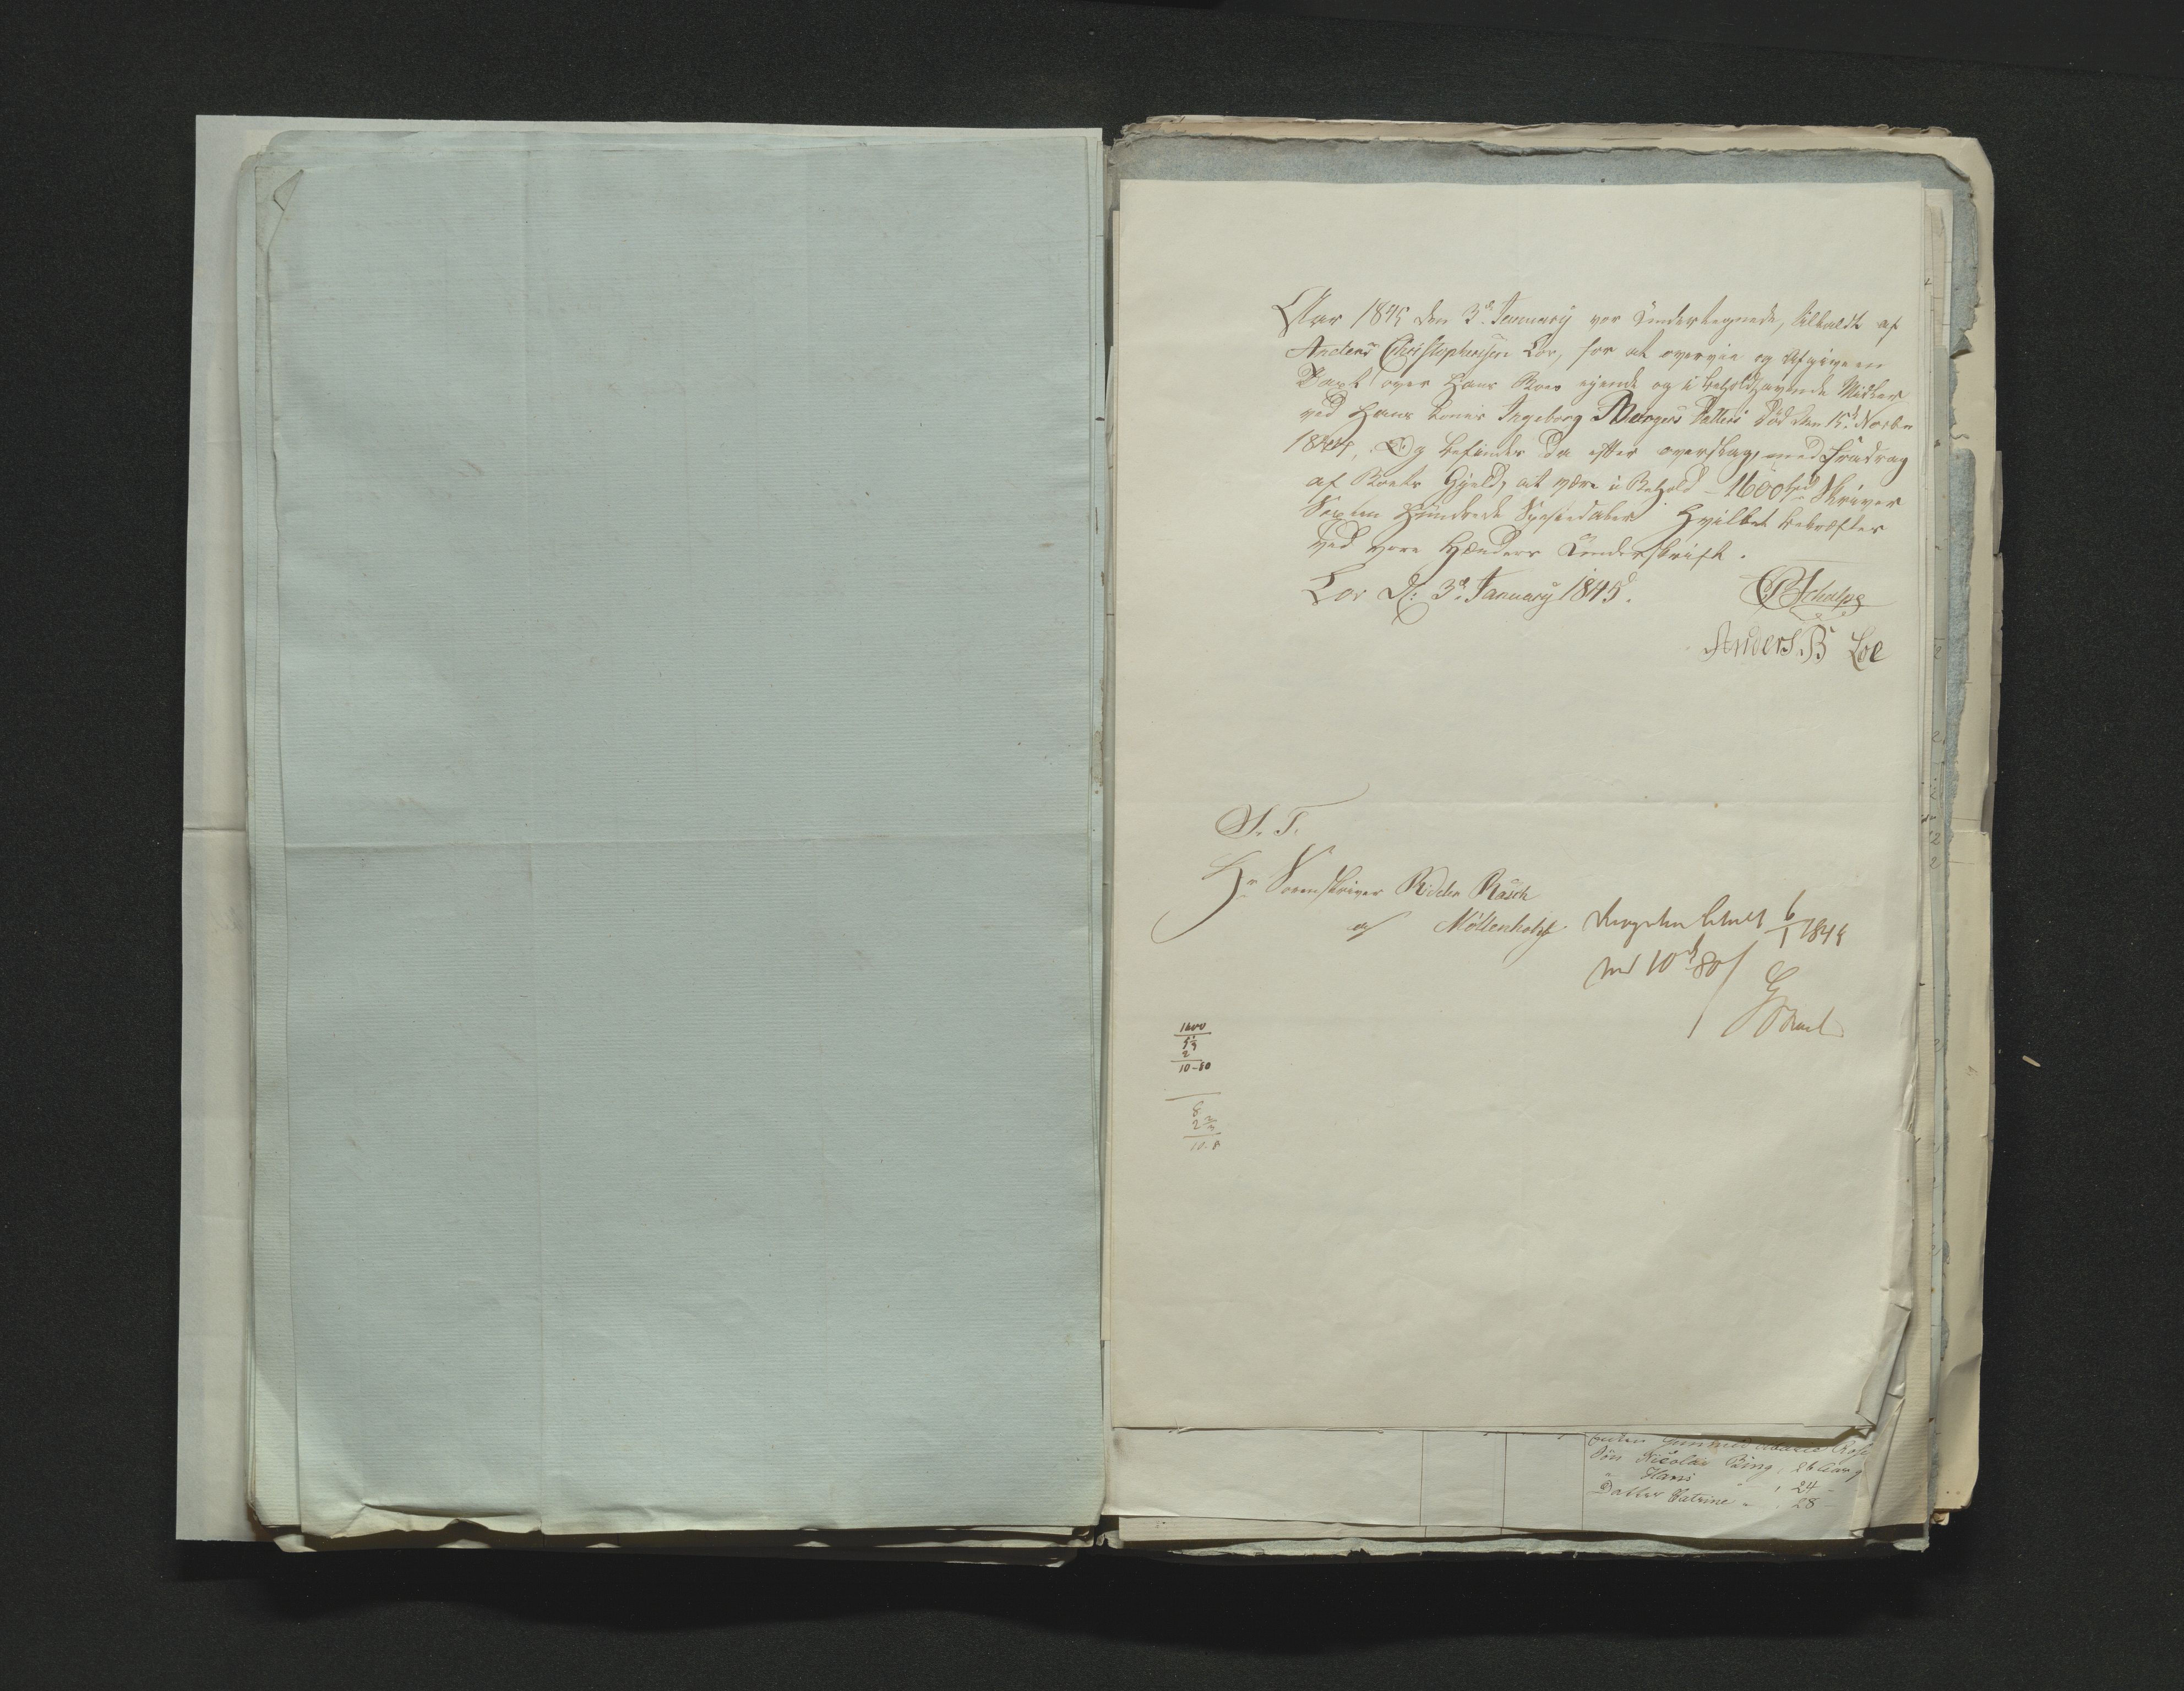 Aar 1845 den 3d. January var Undertegnede, tilkaldt af
Anders Christophersen Loe, for at overveie og Afgive en
Taxt over Hans Boes ejende og i behold havende Midler
ved Hans Kones Ingeborg Børgers Datters Død den 15d. Novbr
1844, Og befindes da efter overslag, med fradrag
af Boets Gjeld, at være i Behold - 1600 Spd Skriver
Sexten Hundrede Speciedaler Hvilket bekræftes
Ved vore Hænders Underskrift.
Loe D: 3d. January 1845.
Anders B Loe
S. T.
Hr Sorenskriver Ridder Rasch
af Möllenhof
betalt 6/1 1845
med 10 80
1600
5 1/3
2
10-80
8
2 2/3
10-8
Enken Gunnild Marie
Søn Nicolai Bing, 26 Aar g
" Hans , 24 -
Datter Catrine " , 28